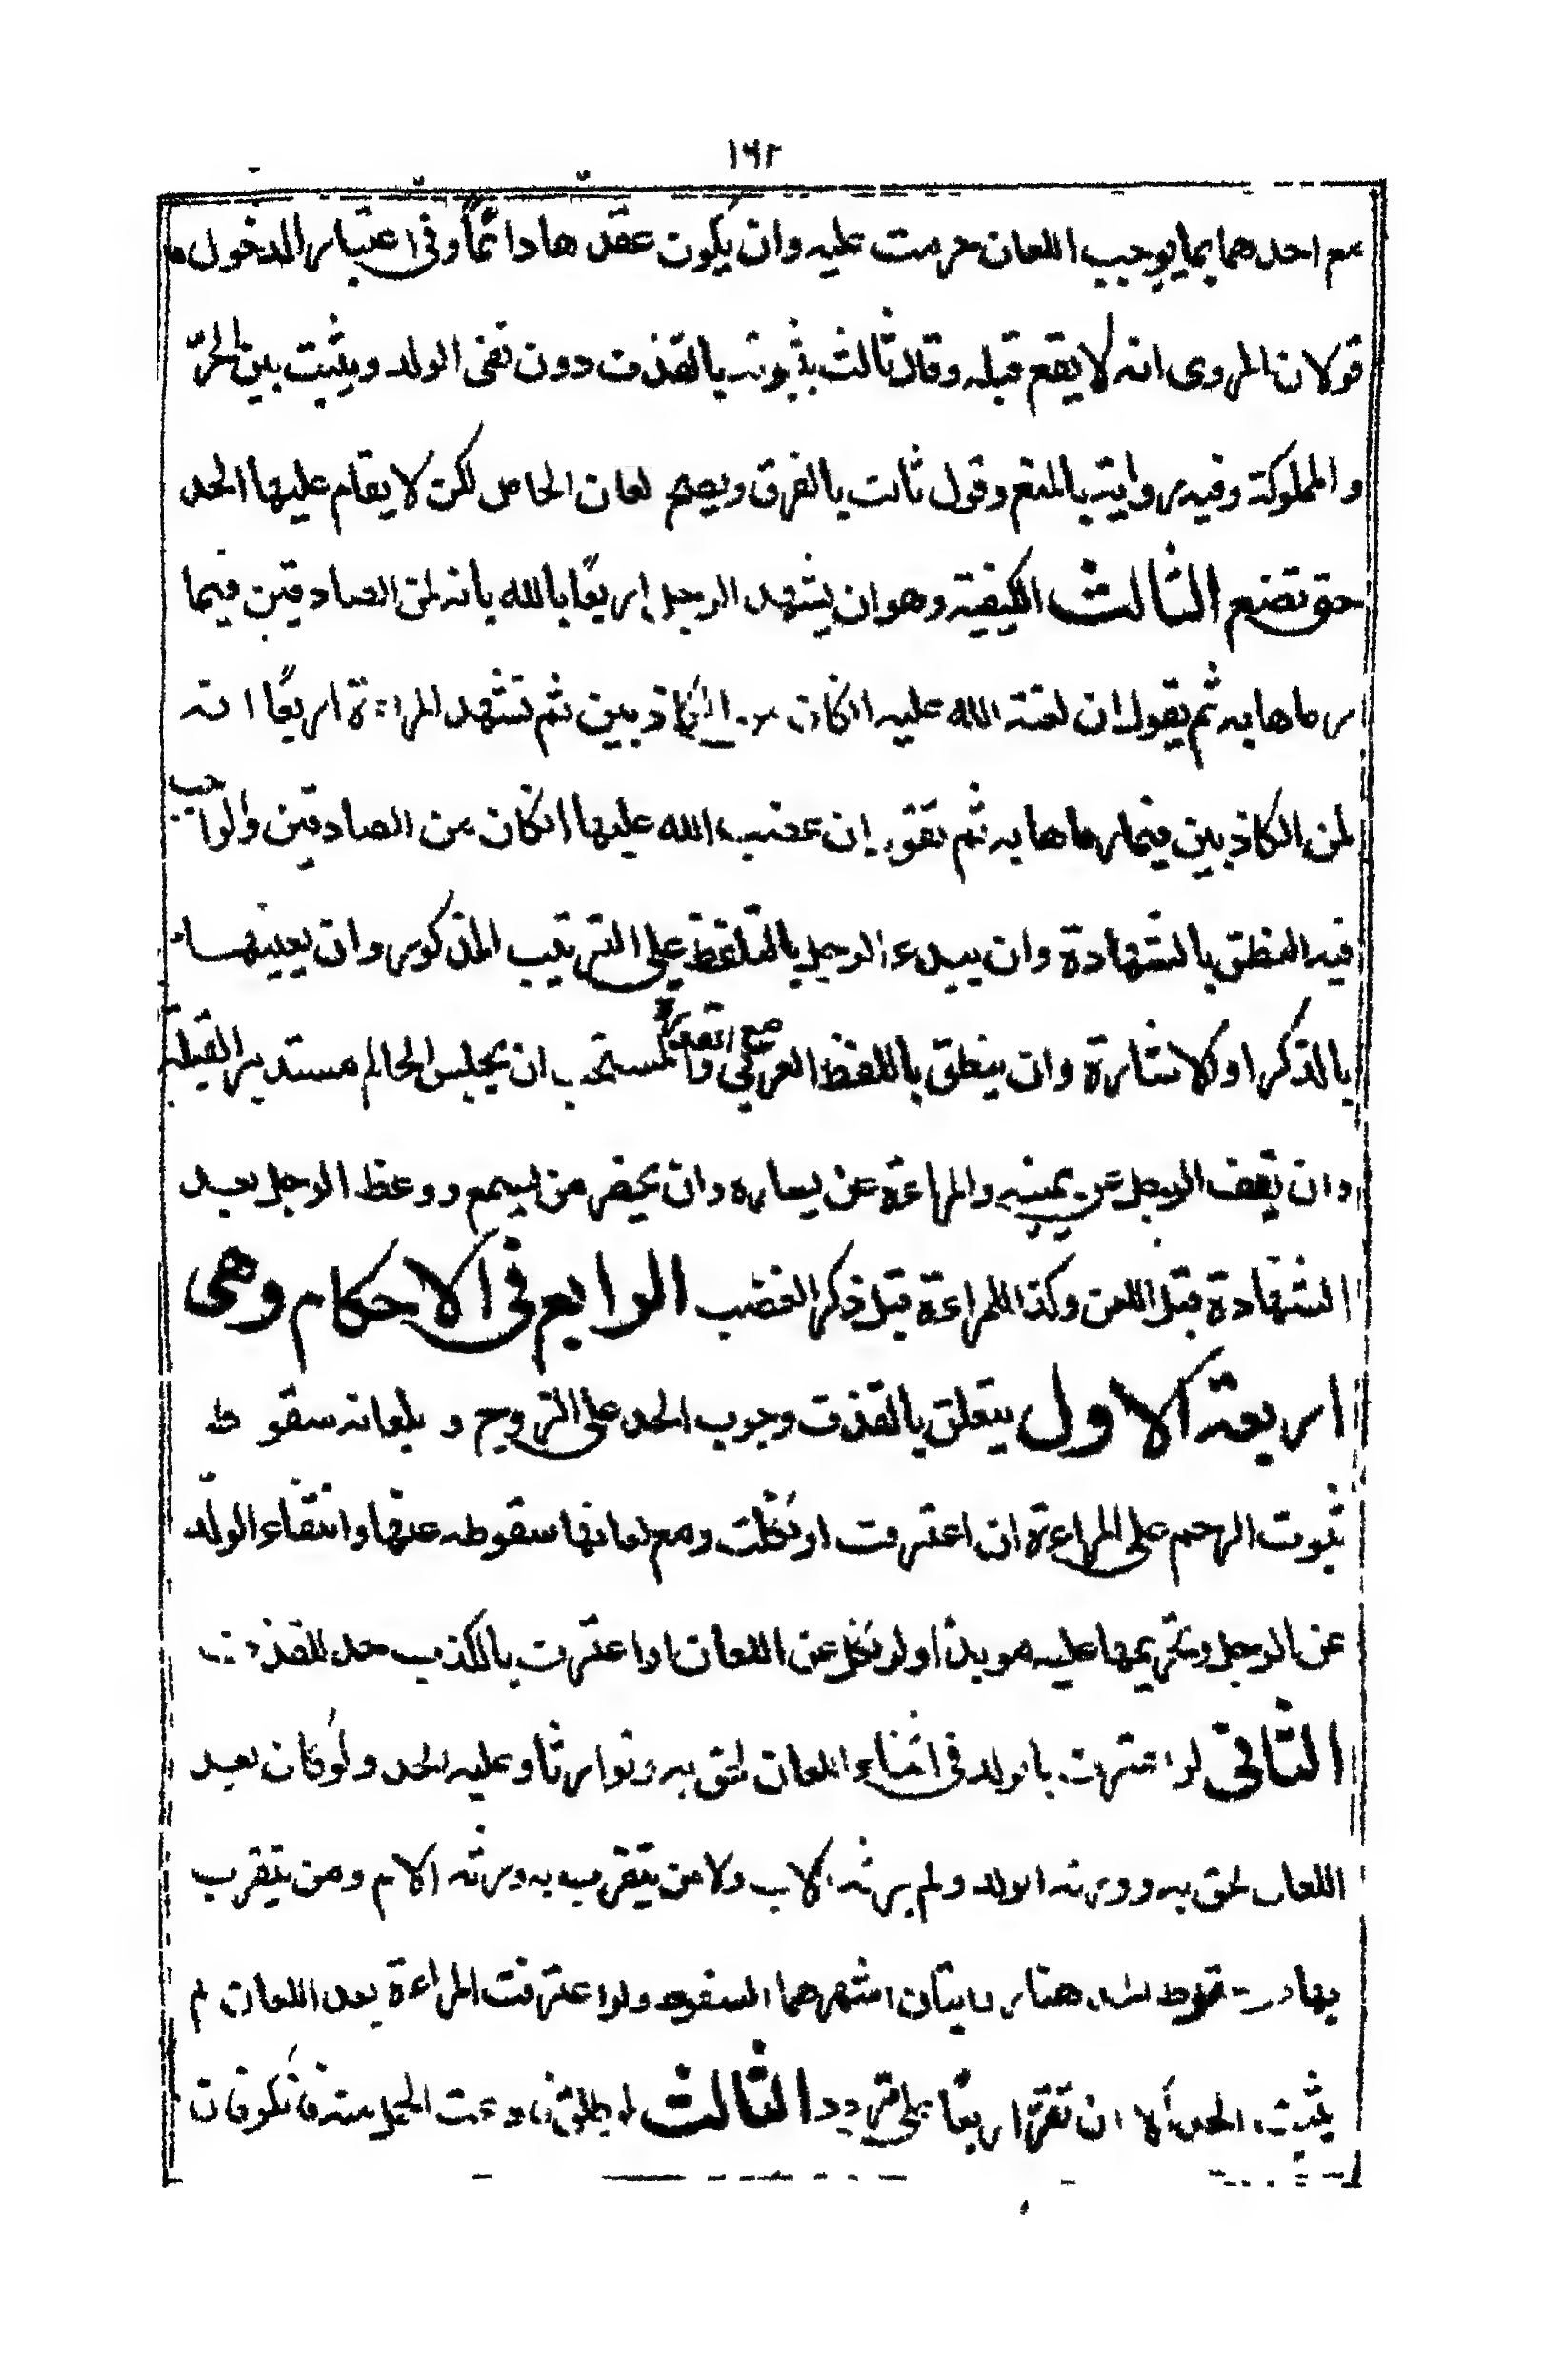 ١٦٢
مع احدهما بما يوجب اللعان حرمت عليه وان يكون عقدها دائماً وفى اعتبار الدخول
قولان المروى انه لا يقع قبله وقال ثالث بثبوته بالقذف دون نفى الولد ويثبت بين الحرّ
والمملوكة وفيه رواية بالمنع وقول ثالث بالفرق ويصح لعان الحامل لكن لا يقام عليها الحد
حتى تضع الثالث الكيفية وهو ان يشهد الرجل اربعًا بالله بانه لمن الصادقين فيما
رماها به ثم يقول ان لعنة الله عليه انكان من الكاذبين ثم تشهد المراءة اربعًا انه
لمن الكاذبين فيما رماها به ثم تقول ان غضب الله عليها انكان من الصادقين والواجب
فيه النطق بالشهادة وان يبدء الرجل بالتلفظ على الترتيب المذكور وان يعينها
بالذكر او كلاشارة وان ينطق باللفظ العربى مع القدرة والمستحب ان يجلس الحاكم مستدبر القبلة
وان يقف الرجل عن يمينه والمراءة عن يساره وان يحضر من يسمع ووعظ الرجل بعد
الشهادة قبل اللعن وكذا المراءة قبل ذكر الغضب الرابع فى الاحكام وهى
اربعة الاول يتعلق بالقذف وجوب الحد على الزوج و بلعانه سقوط
ثبوت الرجم على المراءة ان اعترفت او نكلت ومع لعانها سقوطه عنها وانتفاء الولد
عن الرجل وتحريمها عليه موبدًا ولو نكل عن اللعان او اعترف بالكذب حد للقذف
الثانى لو اعترف بالولد فى اثناء اللعان لحق به وتوارثا وعليه الحد ولو كان بعد
اللعان لحق به وورثه الولد ولم يرثه الاب ولا من يتقرب به وترثه الام ومن يتقرب
بها سقوط هنا روايتان اشهرهما السقوط ولو اعترفت المراءة بعد اللعان لم
يثبت الحد الا ان تقرّ اربعًا على تردد الثالث لو طلق فادعت الحمل منه فانكر فان